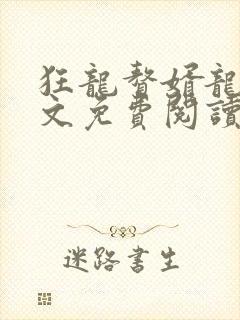 狂龍贅婿龍
文免費閱讀
迷路書生